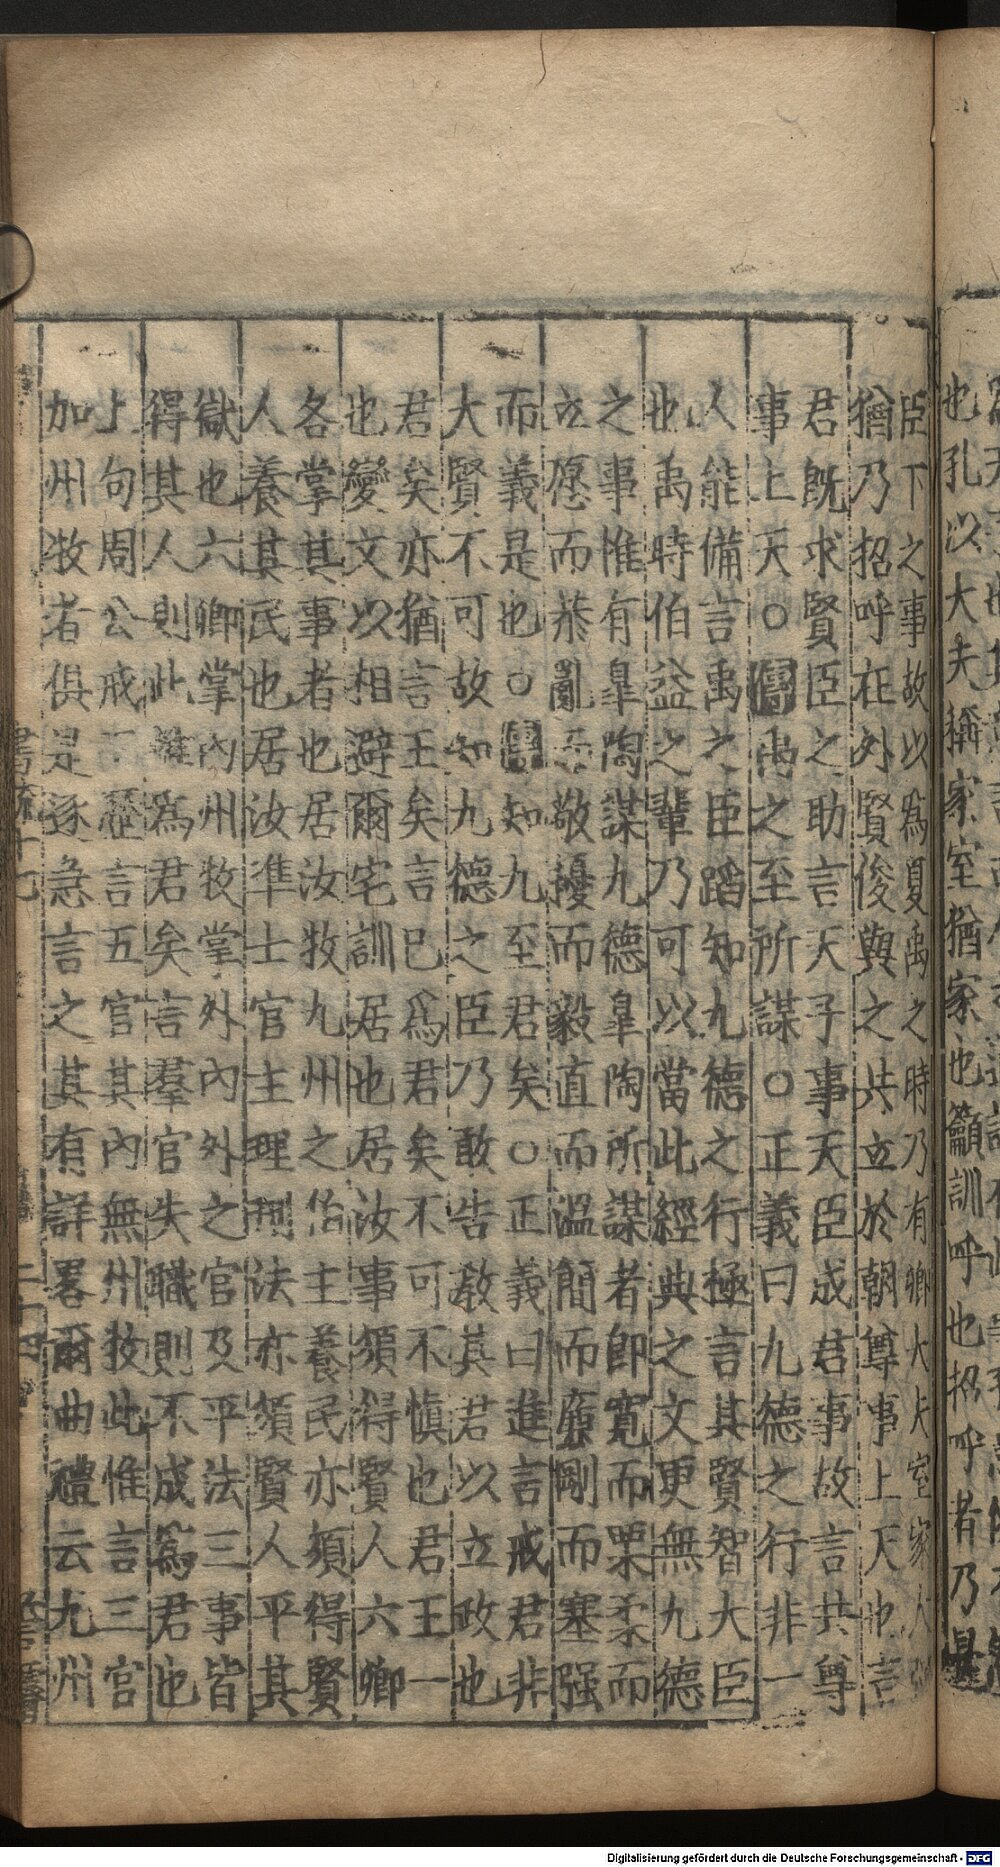 也孔以大夫稱家室猶家也籲訓呼也招呼者乃是
臣下之事故以爲夏禹之時乃有卿大夫室家大強
猶乃招呼在外賢俊與之共立於朝尊事上天也言
君既求賢臣之助言天子事天臣成君事故言共尊
事上天○禹之至所謀○正義曰九德之行非一
人能備言禹之臣蹈知九德之行極言其賢智大臣
也禹時伯益之輩乃可以當此經典之文更無九德
之事惟有皐陶謀九德皐陶所謀者即寬而栗柔而
立愿而恭亂而敬擾而毅直而溫簡而廉剛而塞强
而義是也○知九至君矣○正義曰進言戒君非
大賢不可故知九德之臣乃敢告敎其君以立政也
君矣亦猶言王矣言已爲君矣不可不愼也君王一
也變文以相避爾宅訓居也居汝事須得賢人六卿
各掌其事者也居汝牧九州之伯主養民亦須得賢
人養其民也居汝準士官主理刑法亦須賢人平其
獄也六卿掌內州牧掌外內外之官及平法三事皆
得其人則此惟爲君矣言羣官失職則不成爲君也
上句周公戒王歷言五官其內無州牧此惟言三官
加州牧者俱是逐急言之其有詳畧爾曲禮云九州
書疏十七
二十四
Digitalisierung gefördert durch die Deutsche Forschungsgemeinschaft - DFG